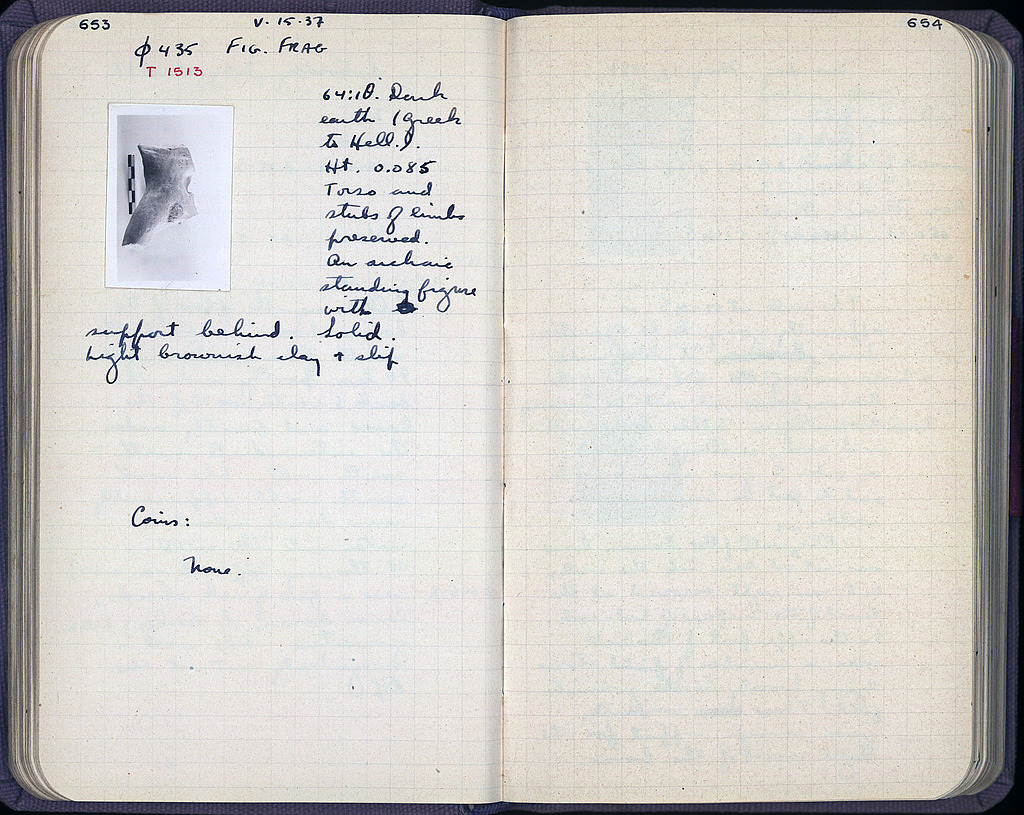 653
V-15-37
φ 435 FIG. FRAG
T 1513
64:ΙΘ. Dark
earth (Greek
to Hell.).
Ht. 0.085
Torso and
stubs of limbs
preserved.
An archaic
standing figure
with
support behind. Solid.
Light brownish clay + slip
Coins:
None.
654